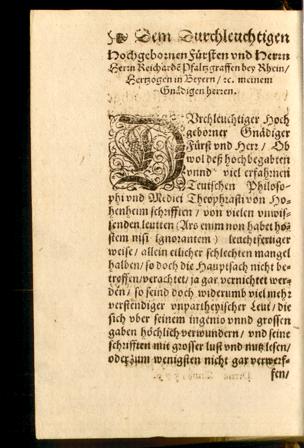 Dem Durchleuchtigen
Hochgebornen Fürsten vnd Herrn
Herrn Reichardẽ Pfaltzgraffen bey Rhein/
Hertzogen in Beyern/ ꝛc. meinem
Gnädigen herren.
DVrchleuchtiger Hoch
geborner Gnädiger
Fürst vnd Herr/ Ob
wol deß hochbegabten
vnnd viel erfahrnen
Teutschen Philoso-
phi vnd Medici Theophrasti von Ho-
henheim schrifften / von vielen vnwis-
senden leutten (Ars enim non habet ho-
stem nisi ignorantem) leuchtfertiger
weise/ allein etlicher schlechten mangel
halben/ so doch die Hauptsach nicht be-
troffen/verachtet/ ja gar vernichtet wer-
den/ so seind doch widerumb viel mehr
verständiger vnpartheyischer Leut/ die
sich vber seinem ingenio vnnd grossen
gaben höchlich verwundern/ vnd seine
schrifften mit grosser lust vnd nutz lesen/
oder zum wenigsten nicht gar verwerf-
fen/